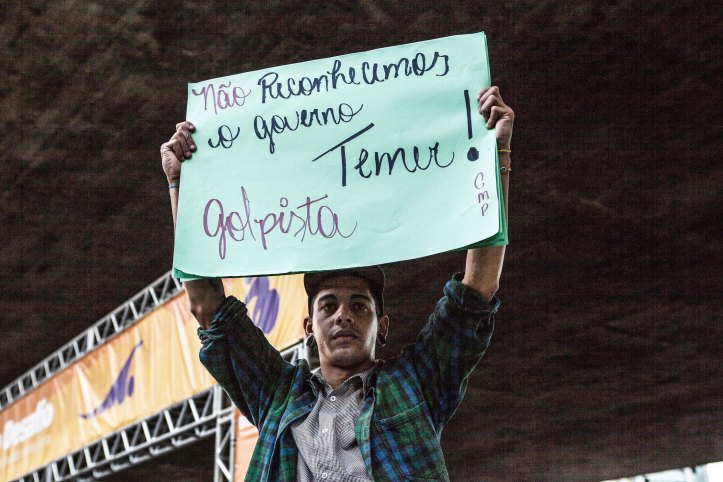 Não Reconhecemos
o governo
Temer!
golpista
CMP
Desafio